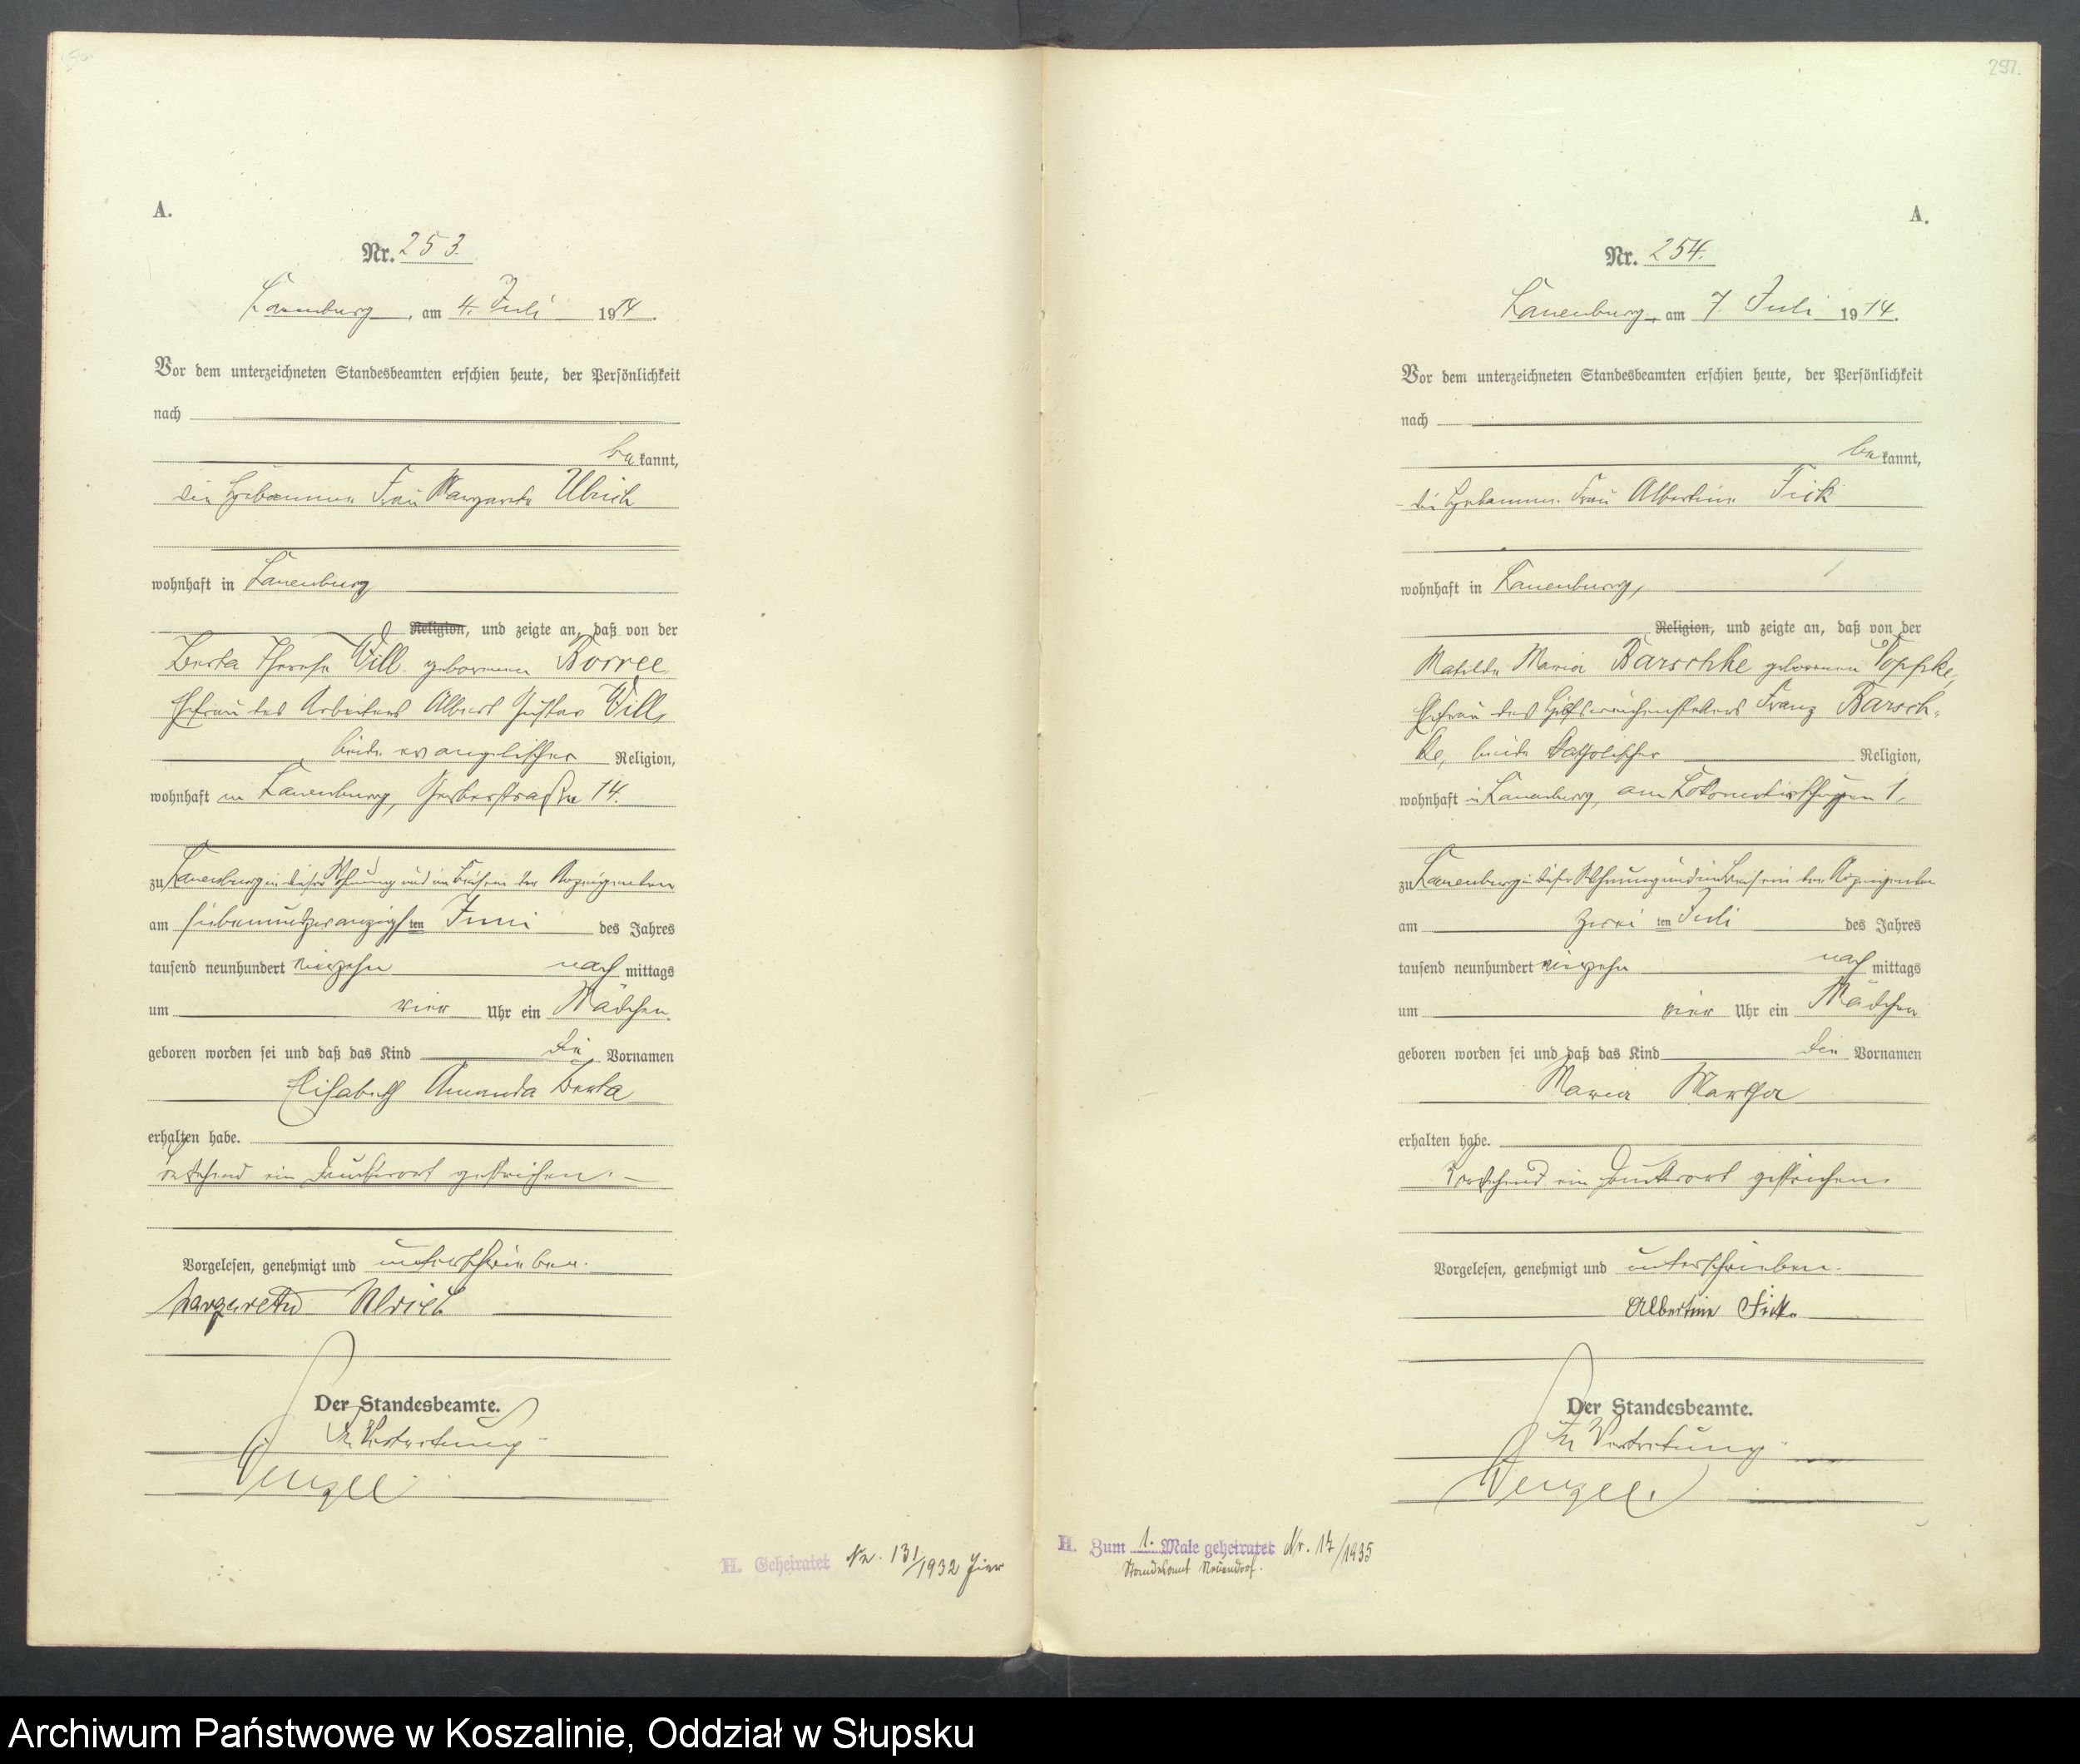 A.
Nr. 253.
Lauenburg, am 4. Juli 1914.
Vor dem unterzeichneten Standesbeamten erschien heute, der Persönlichkeit
nach
bekannt,
die Hebamme Frau Margarete Ulrich
wohnhaft in Lauenburg
Religion, und zeigte an, daß von der
Berta Therese Will geborenen Borree
Ehefrau des Arbeiters Albert Gustav Will,
beide evangelischer Religion,
wohnhaft in Lauenburg, Gerberstraße 14.
zu Lauenburg in dieser Wohnung und im Beisein der Anzeigenden
am siebenundzwanzigsten Juni des Jahres
tausend neunhundert vierzehn nachmittags
um vier Uhr ein Mädchen
geboren worden sei und daß das Kind die Vornamen
Elisabeth Amanda Berta
erhalten habe.
Vorstehend ein Druckwort gestrichen.
Vorgelesen, genehmigt und unterschrieben.
Margarethe Ulrich
Der Standesbeamte.
In Vertretung
Wenzel
H. Geheiratet Nr. 131/1932 hier
297.
A.
Nr. 254.
Lauenburg, am 7. Juli 1914.
Vor dem unterzeichneten Standesbeamten erschien heute, der Persönlichkeit
nach
bekannt,
die Hebamme Frau Albertine Fick
wohnhaft in Lauenburg,
Religion, und zeigte an, daß von der
Matilde Maria Barschke geborenen Toppke,
Ehefrau des Hilfsweichenstellers Franz Barsch-
ke, beide katholischer Religion,
wohnhaft in Lauenburg, am Lokomotivschuppen 1,
zu Lauenburg in dieser Wohnung und im Beisein der Anzeigenden
am zweiten Juli des Jahres
tausend neunhundert vierzehn nachmittags
um vier Uhr ein Mädchen
geboren worden sei und daß das Kind die Vornamen
Maria Martha
erhalten habe.
Vorstehend ein Druckwort gestrichen.
Vorgelesen, genehmigt und unterschrieben.
Albertine Fick
Der Standesbeamte.
In Vertretung
Wenzel.
H. Zum 1. Male geheiratet Nr. 17/1935
Standesamt Neuendorf.
Archiwum Państwowe w Koszalinie, Oddział w Słupsku